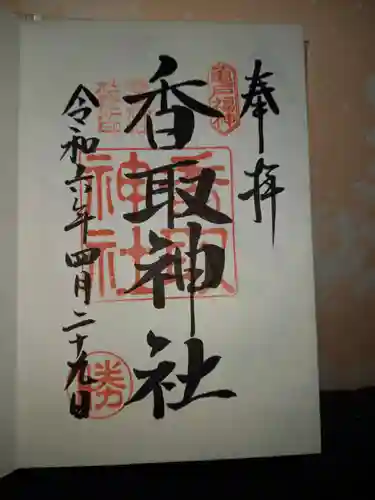 奉拝
亀戸福神
香取神社
香取神社
令和六年四月二十九日
勝